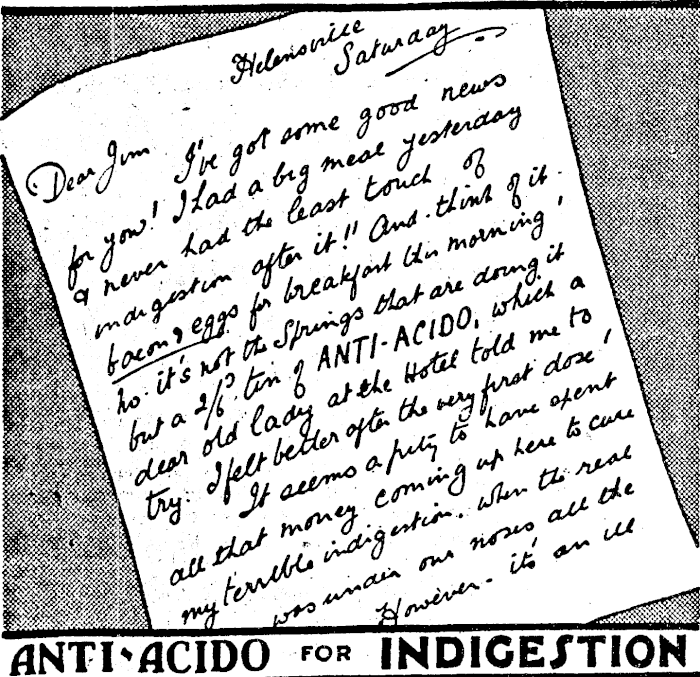 Helensville
Saturday
Dear Jim I've got some good news
for you! I had a big meal yesterday
& never had the least touch of
indigestion after it!! And think of it -
bacon & eggs for breakfast this morning!
No - it's not the Springs that are doing it
but a 2/6 tin of ANTI-ACIDO, which a
dear old lady at the Hotel told me to
try. I felt better after the very first dose!
It seems a pity to have spent
all that money coming up here to cure
my terrible indigestion. when the real
was under our noses all the
However - it's an ill
ANTI-ACIDO FOR INDIGESTION